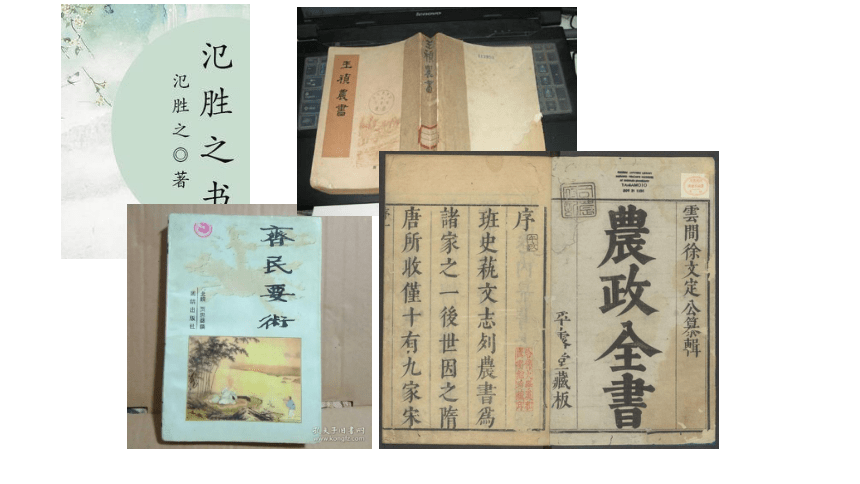 氾胜之书
氾胜之◎著
王禎農書
王禎農書
齊民要術
雲間徐文定公纂輯
農政全書
平露堂藏板
序
班史蓺文志列農書爲
諸家之一後世因之隋
唐所收僅十有九家宋